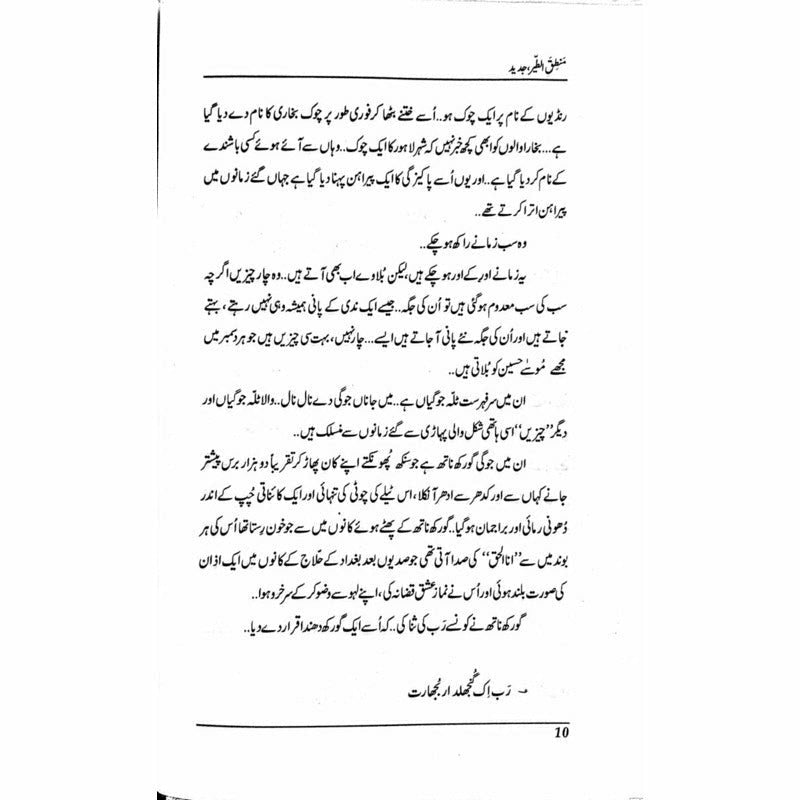 مَنطِقُ الطّیر، جدید
رنڈیوں کے نام پر ایک چوک ہو.. اُسے ختنے بٹھا کر فوری طور پر چوک بخاری کا نام دے دیا گیا
ہے... بخارا والوں کو ابھی کچھ خبر نہیں کہ شہر لاہور کا ایک چوک.. وہاں سے آئے ہوئے کسی باشندے
کے نام کر دیا گیا ہے.. اور یوں اُسے پاکیزگی کا ایک پیراہن پہنا دیا گیا ہے جہاں گئے زمانوں میں
پیراہن اترا کرتے تھے..
وہ سب زمانے راکھ ہو چکے..
یہ زمانے اور کے اور ہو چکے ہیں، لیکن بُلاوے اب بھی آتے ہیں.. وہ چار چیزیں اگرچہ
سب کی سب معدوم ہو گئی ہیں تو اُن کی جگہ.. جیسے ایک ندی کے پانی ہمیشہ وہی نہیں رہتے، بہتے
جاتے ہیں اور اُن کی جگہ نئے پانی آ جاتے ہیں ایسے... چار نہیں، بہت سی چیزیں ہیں جو ہر دسمبر میں
مجھے مُوسےٰ حسین کو بُلاتی ہیں..
ان میں سرِفہرست ٹلّہ جوگیاں ہے.. میں جاناں جوگی دے نال نال.. والا ٹلّہ جوگیاں اور
دیگر ”چیزیں“ اسی ہاتھی شکل والی پہاڑی سے گئے زمانوں سے منسلک ہیں..
ان میں جوگی گورکھ ناتھ ہے جو سنکھ پُھونکتے اپنے کان پھاڑ کر تقریباً دو ہزار برس پیشتر
جانے کہاں سے اور کدھر سے ادھر آ نکلا، اس ٹیلے کی چوٹی کی تنہائی اور ایک کائناتی چُپ کے اندر
دُھونی رمائی اور براجمان ہو گیا.. گورکھ ناتھ کے پھٹے ہوئے کانوں میں سے جو خون رِستا تھا اُس کی ہر
بوند میں سے ”انا الحق“ کی صدا آتی تھی جو صدیوں بعد بغداد کے حلّاج کے کانوں میں ایک اذان
کی صورت بلند ہوئی اور اُس نے نمازِ عشق قضا نہ کی، اپنے لہو سے وضو کر کے سرخرو ہوا..
گورکھ ناتھ نے کونسے رَب کی ثنا کی.. کہ اُسے ایک گورکھ دھندا قرار دے دیا..
؎ رَب اِک گُنجھلدار بُجھارت
10